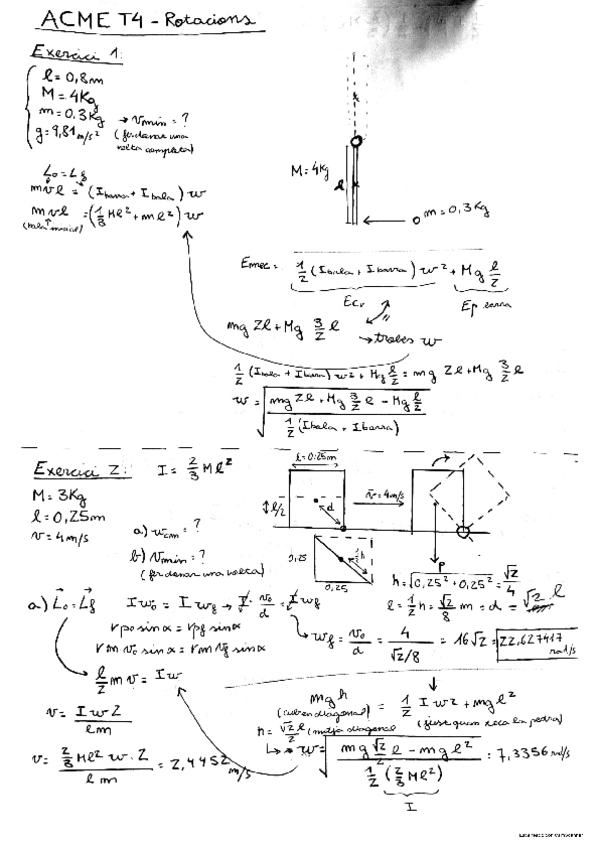 ACME T4 - Rotacions
Exercici 1:
l = 0,8m
M = 4Kg
m = 0.3Kg → vmin = ?
g = 9,81 m/s² (fer donar una
volta completa)
L₀ = Lf
m v l = (Ibarra + Ibala) w
m v l = (1/3 Ml² + ml²) w
(bala inicial)
M = 4Kg
l
m = 0,3Kg
Emec = 1/2 (Ibala + Ibarra) w² + Mg l/2
Ecr Ep barra
mg 2l + Mg 3/2 l
→ trobes w
1/2 (Ibala + Ibarra) w² + Mg l/2 = mg 2l + Mg 3/2 l
w = √((mg 2l + Mg 3/2 l - Mg l/2) / (1/2 (Ibala + Ibarra)))
Exercici 2: I = 2/3 Ml²
M = 3Kg
l = 0,25m
v = 4m/s
a) wcm = ?
b) Vmin = ?
(fer donar una volta)
l = 0.25m
l/2
d
v = 4m/s
P
0,25
0,25
1/2 h
h = √(0,25² + 0,25²) = √2/4
l = 1/2 h = √2/8 m = d = √2 l
a) L₀ = Lf I w₀ = I wf → I · v₀/d = I wf
r p₀ sin α = r pf sin α
r m v₀ sin α = r m vf sin α
wf = v₀/d = 4/(√2/8) = 16√2 = 22,627417 rad/s
l/2 m v = I w
v = I w 2 / l m
v = 2/3 Ml² w · 2 / l m = 2,4452 m/s
m g h = 1/2 I w² + mg l/2
(cub en diagonal) (just quan toca la pedra)
h = √2/2 l (mitja diagonal)
w = √((mg √2/2 l - mg l/2) / (1/2 (2/3 Ml²))) = 7,3356 rad/s
I